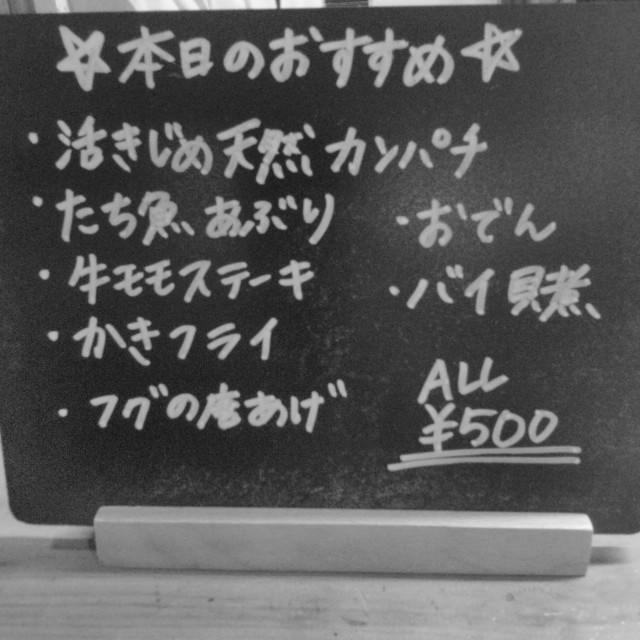 ☆本日のおすすめ☆
・活きじめ天然カンパチ
・たち魚あぶり
・牛モモステーキ
・かきフライ
・フグの唐あげ
・おでん
・バイ貝煮
ALL
¥500